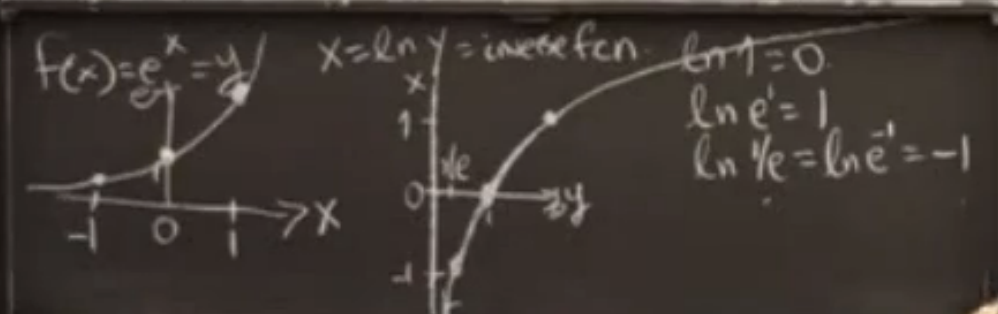 f(x)=e^x=y
e
1
-1 0 1 x
x=ln y=inverse fcn.
x
1
1/e
0
1
e y
-1
ln 1=0
ln e^1=1
ln 1/e=ln e^-1=-1